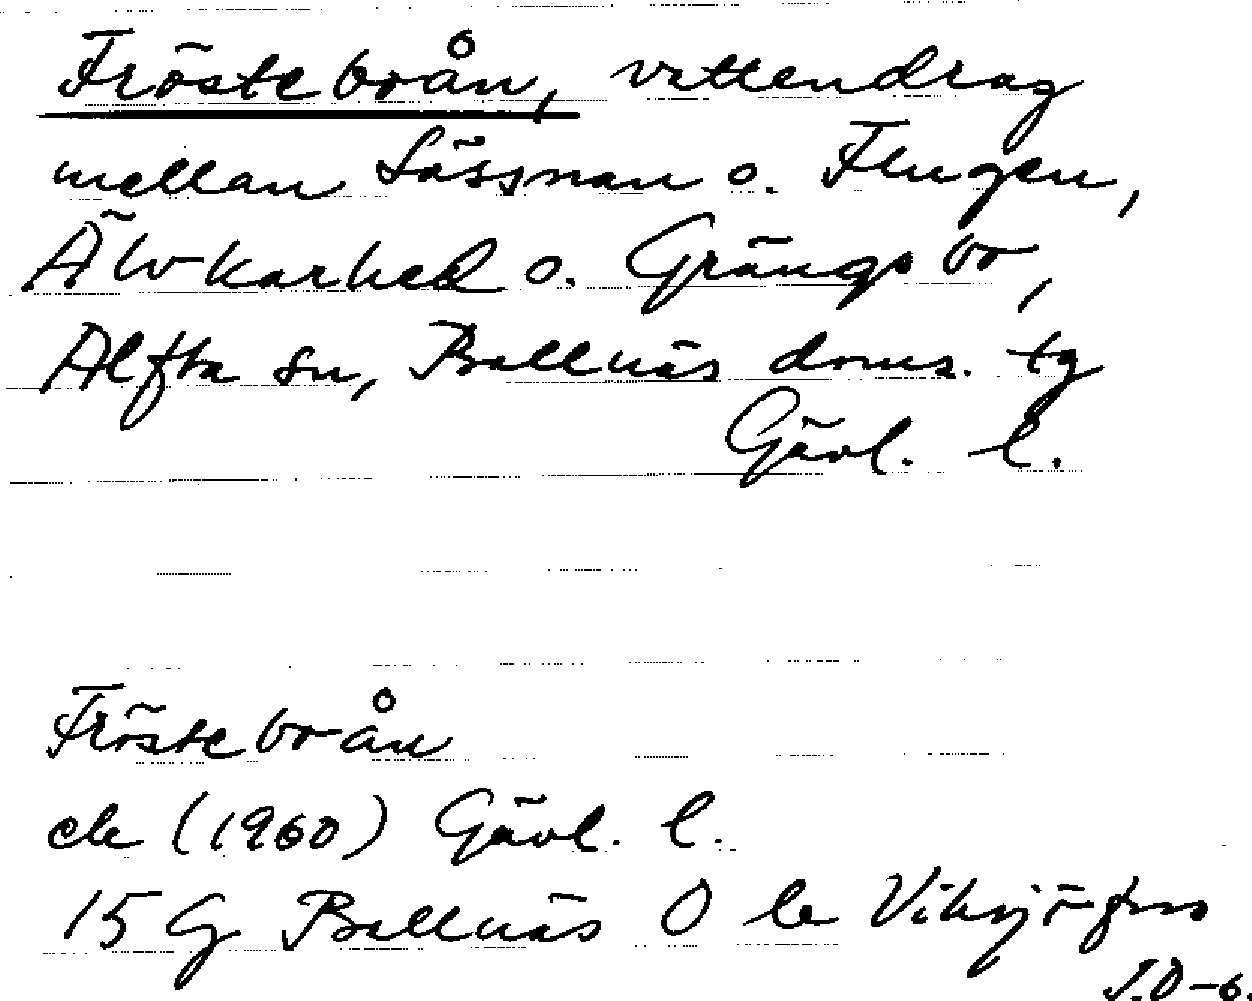 Frösteboån, vattendrag
mellan Lössnan o. Flugen,
Älvkarhed o. Grängsbo,
Alfta sn, Bollnäs doms. tg
Gävl. l.
Frösteboån
ek (1960) Gävl. l.
15 G Bollnäs O le Viksjöfors